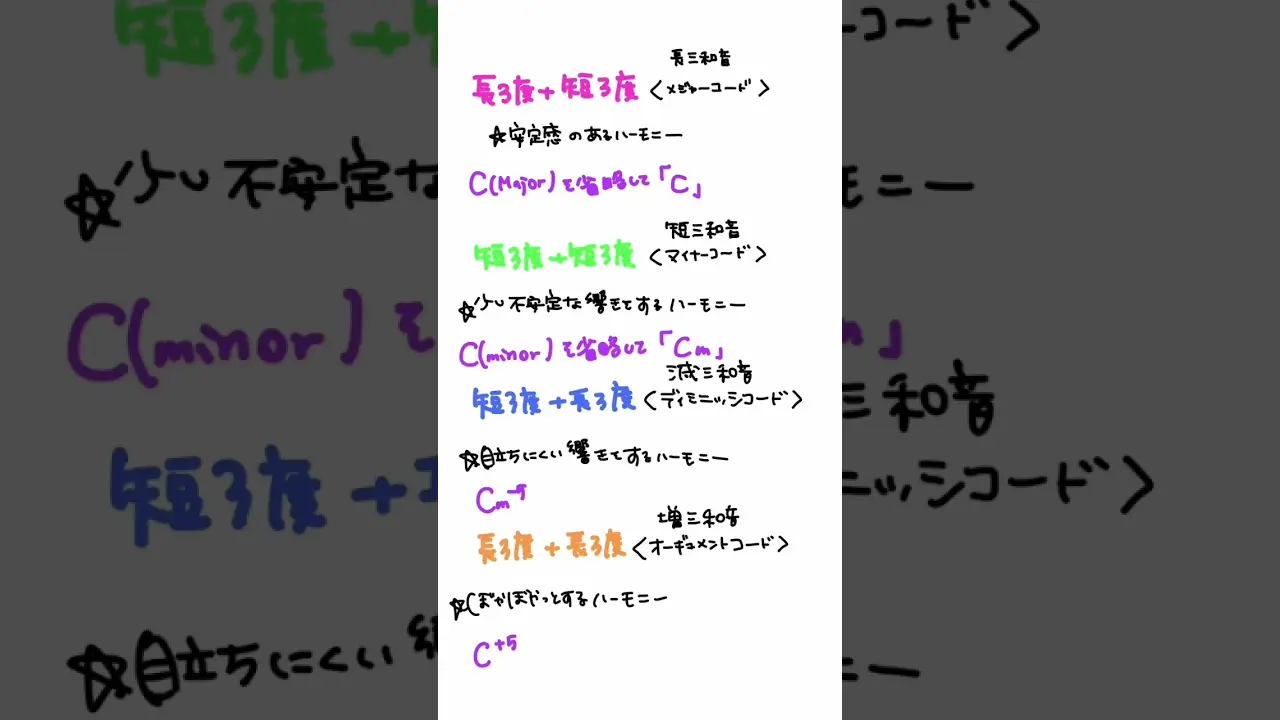 長三和音
長3度+短3度〈メジャーコード〉
☆安定感のあるハーモニー
C(Major)を省略して「C」
短三和音
短3度+短3度〈マイナーコード〉
☆少し不安定な響きをするハーモニー
C(minor)を省略して「Cm」
減三和音
短3度+長3度〈ディミニッシコード〉
☆目立ちにくい響きをするハーモニー
Cm-5
増三和音
長3度+長3度〈オーギュメントコード〉
☆ぼやぼやっとするハーモニー
C+5